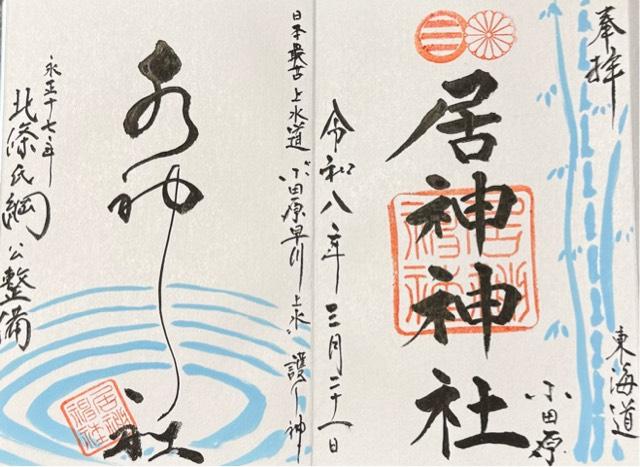 奉拝
東海道
小田原
居神神社
令和八年三月二十一日
日本最古上水道 小田原早川上水 護り神
水神社
永正十七年
北條氏綱公整備
居神
神社